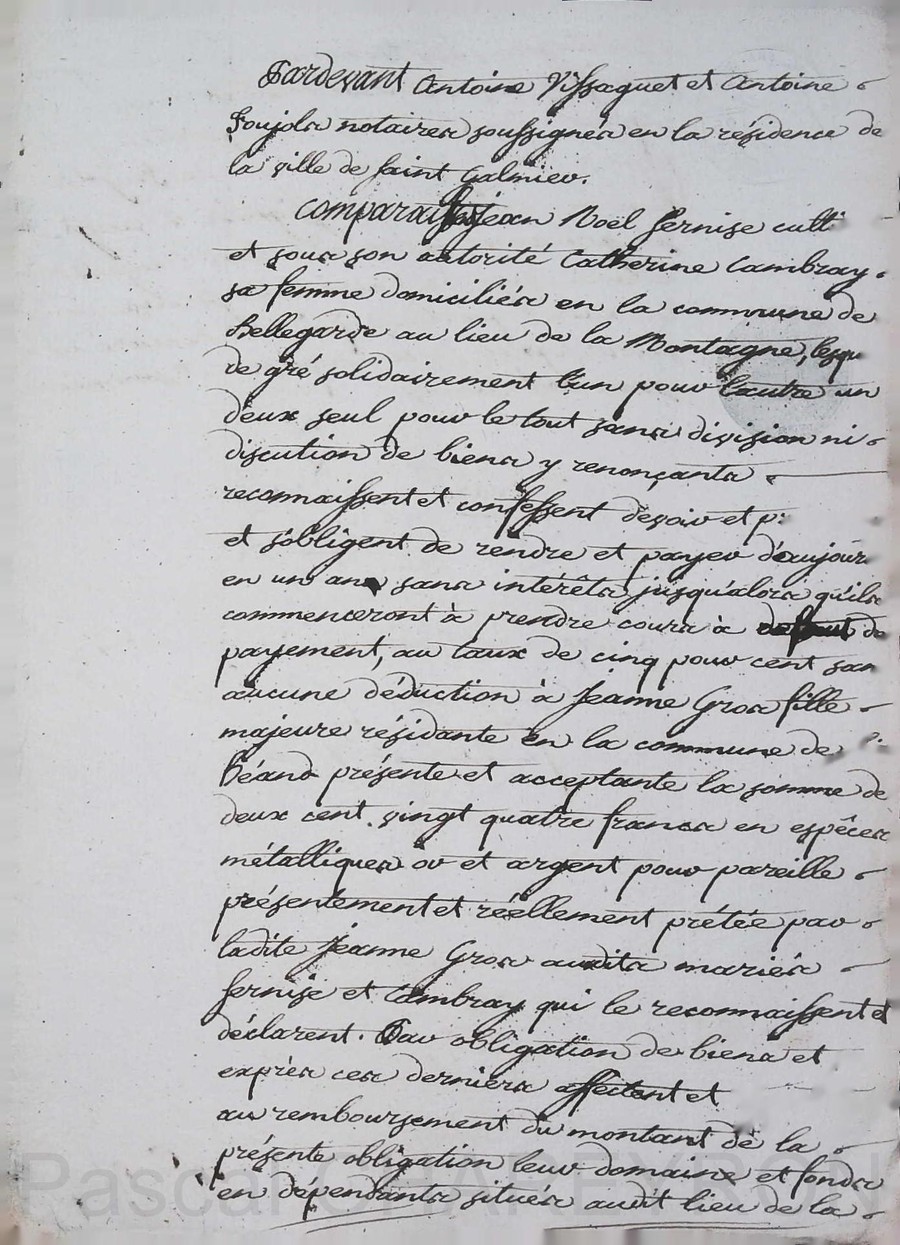 Pardevant Antoine Vissaguet et Antoine
Soujols notaires soussignés en la résidence de
la ville de Saint Galmier.
comparaissent Jean Noël Fernise cult
et sous son autorité Catherine Cambray
sa femme domiciliés en la commune de
Bellegarde au lieu de la Montagne, lesqu
de gré solidairement l'un pour l'autre un
d'eux seul pour le tout sans division ni
discution de biens y renonçants
reconnaissent et confessent devoir et p:
et s'obligent de rendre et payer d'aujour
en un an sans intérêts jusqu'alors qu'ils
commenceront à prendre cours à défaut de
payement, au taux de cinq pour cent san
aucune déduction à Jeanne Gros fille
majeure résidante en la commune de
Béand présente et acceptante la somme de
deux cent vingt quatre francs en espèces
métalliques or et argent pour pareille
présentement et réellement prétée par
ladite Jeanne Gros audits mariés
Fernise et Cambray qui le reconnaissent et
déclarent. Par obligation de biens et
exprès ces derniers affectent et
au remboursement du montant de la
présente obligation leur domaine et fonds
en dépendants situés audit lieu de la
Pascal CHAREYRON